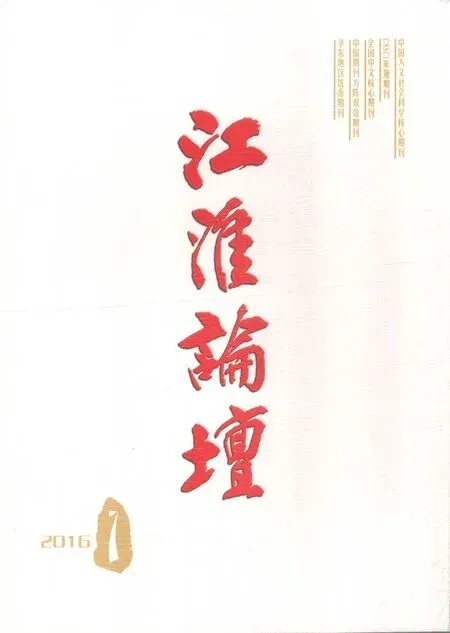 中国人文社会科学核心期刊
CSSCI来源期刊
全国中文核心期刊
中国期刊方阵双效期刊
华东地区优秀期刊
江淮論壇
2016
1